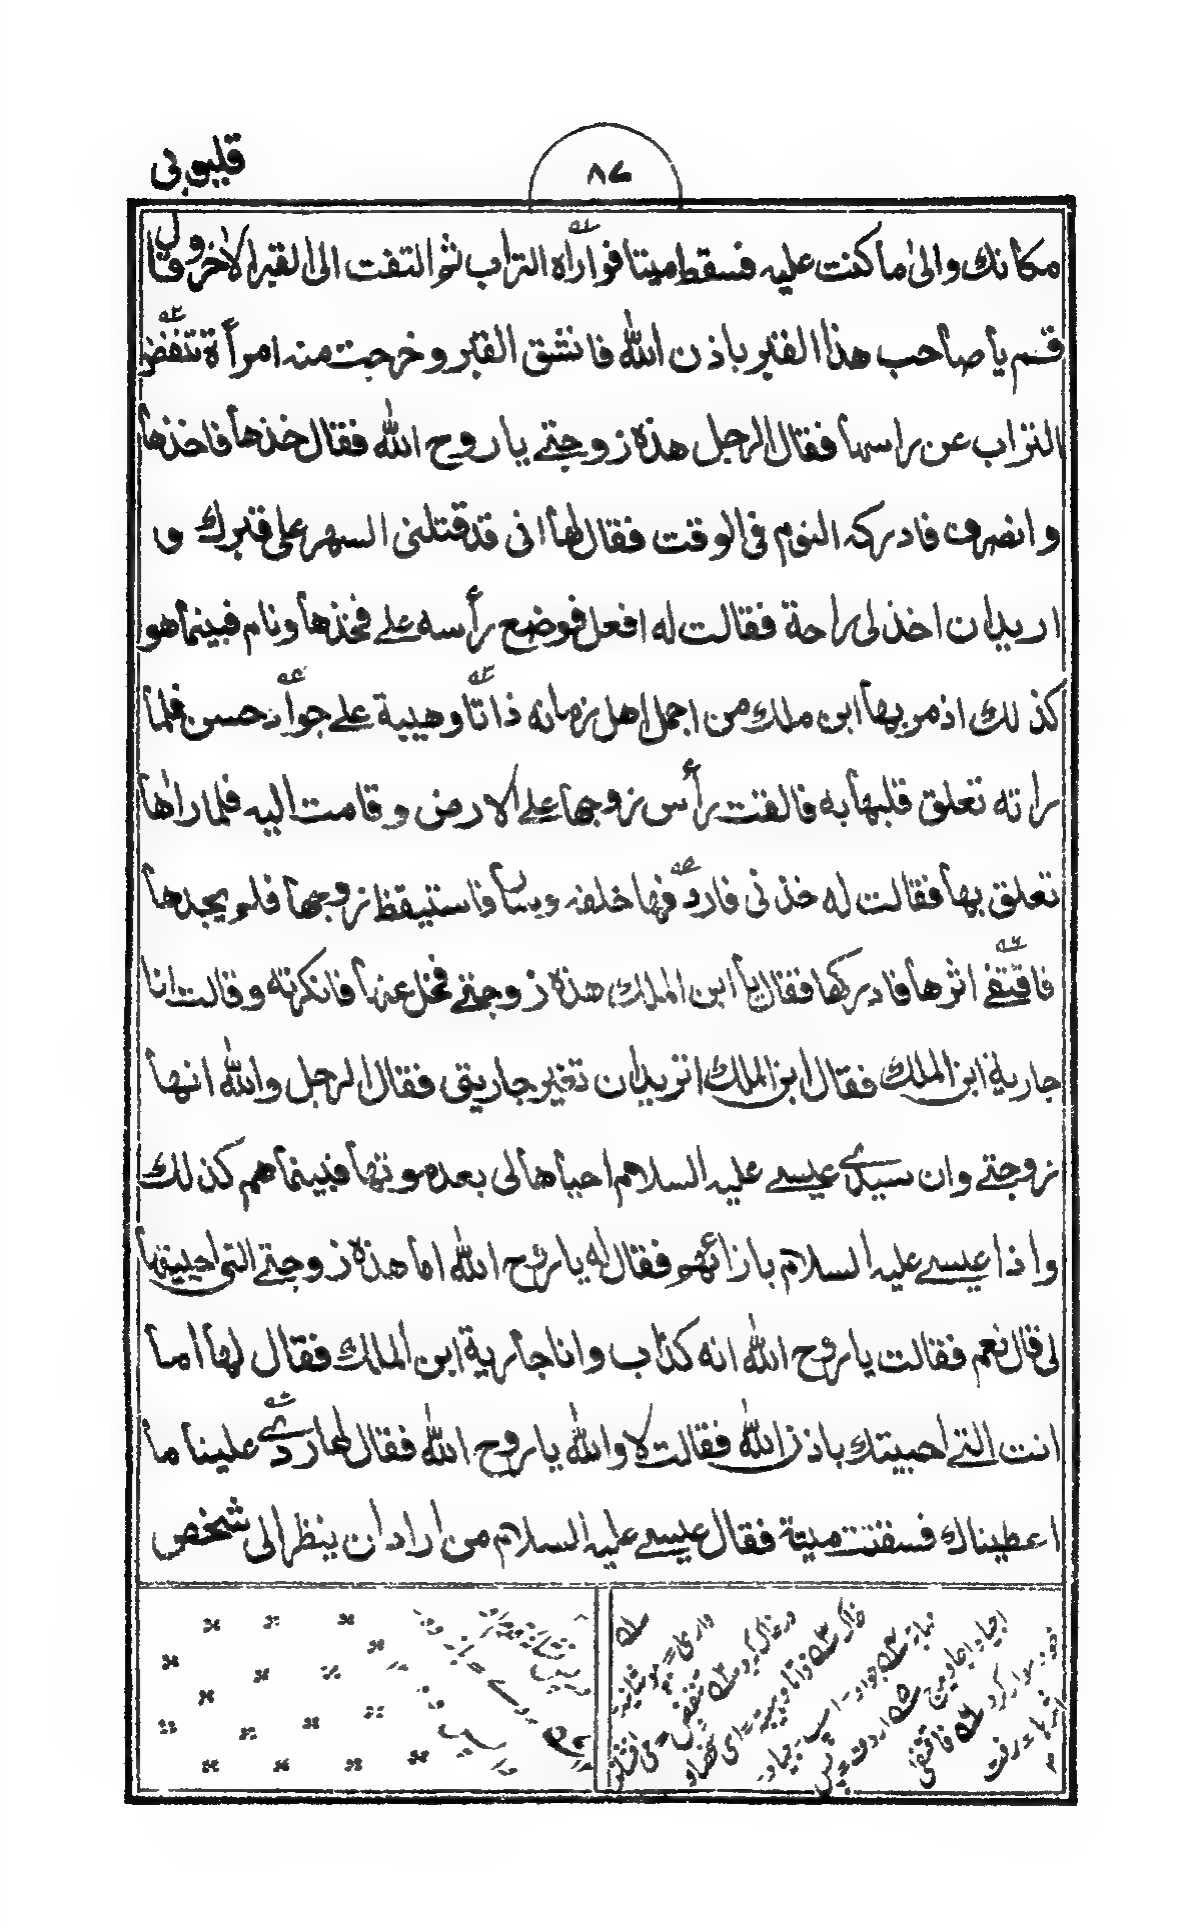 قليوبي
٨٧
مكانك والى ما كنت عليه فسقط ميتا فواراه التراب ثم التفت الى القبر الاخر وقال
قم يا صاحب هذا القبر باذن الله فانشق القبر وخرجت منه امرأة تنفض
التراب عن راسها فقال الرجل هذه زوجتے يا روح الله فقال خذها فاخذها
وانصرف فادركه النوم فى الوقت فقال لها انى قد قتلنى السهر على قبرك و
اريد ان اخذ لى راحة فقالت له افعل فوضع رأسه علے فخذها ونام فبينما هو
كذلك اذ مر بها ابن ملك من اجمل اهل زمانه ذاتا وهيبة علے جواد حسن فلما
راته تعلق قلبها به فالقت رأس زوجها علے الارض وقامت اليه فلما راها
تعلق بها فقالت له خذنى فاردفها خلفه وسار فاستيقظ زوجها فلم يجدها
فاقتفے اثرها فادركها فقال يا ابن الملك هذه زوجتے فخل عنها فانكرته وقالت انا
جارية ابن الملك فقال ابن الملك اتريد ان تغير جاريتى فقال الرجل والله انها
زوجتے وان سيدے عيسے عليه السلام احياها لى بعد موتها فبينما هم كذلك
واذا عيسے عليه السلام بازائهم فقال له يا روح الله اما هذه زوجتے التى احييتها
لى قال نعم فقالت يا روح الله انه كذاب وانا جارية ابن الملك فقال لها اما
انت التے احييتك باذن الله فقالت لا والله يا روح الله فقال لها ردے علينا ما
اعطيناك فسقتت ميتة فقال عيسے عليه السلام من اراد ان ينظر الى شخص